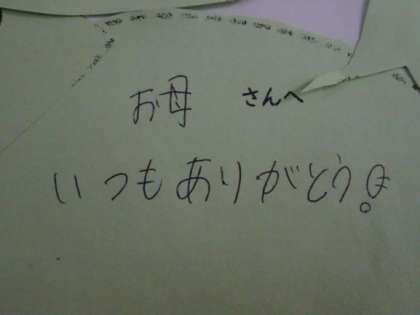 お母 さんへ
いつもありがとう!